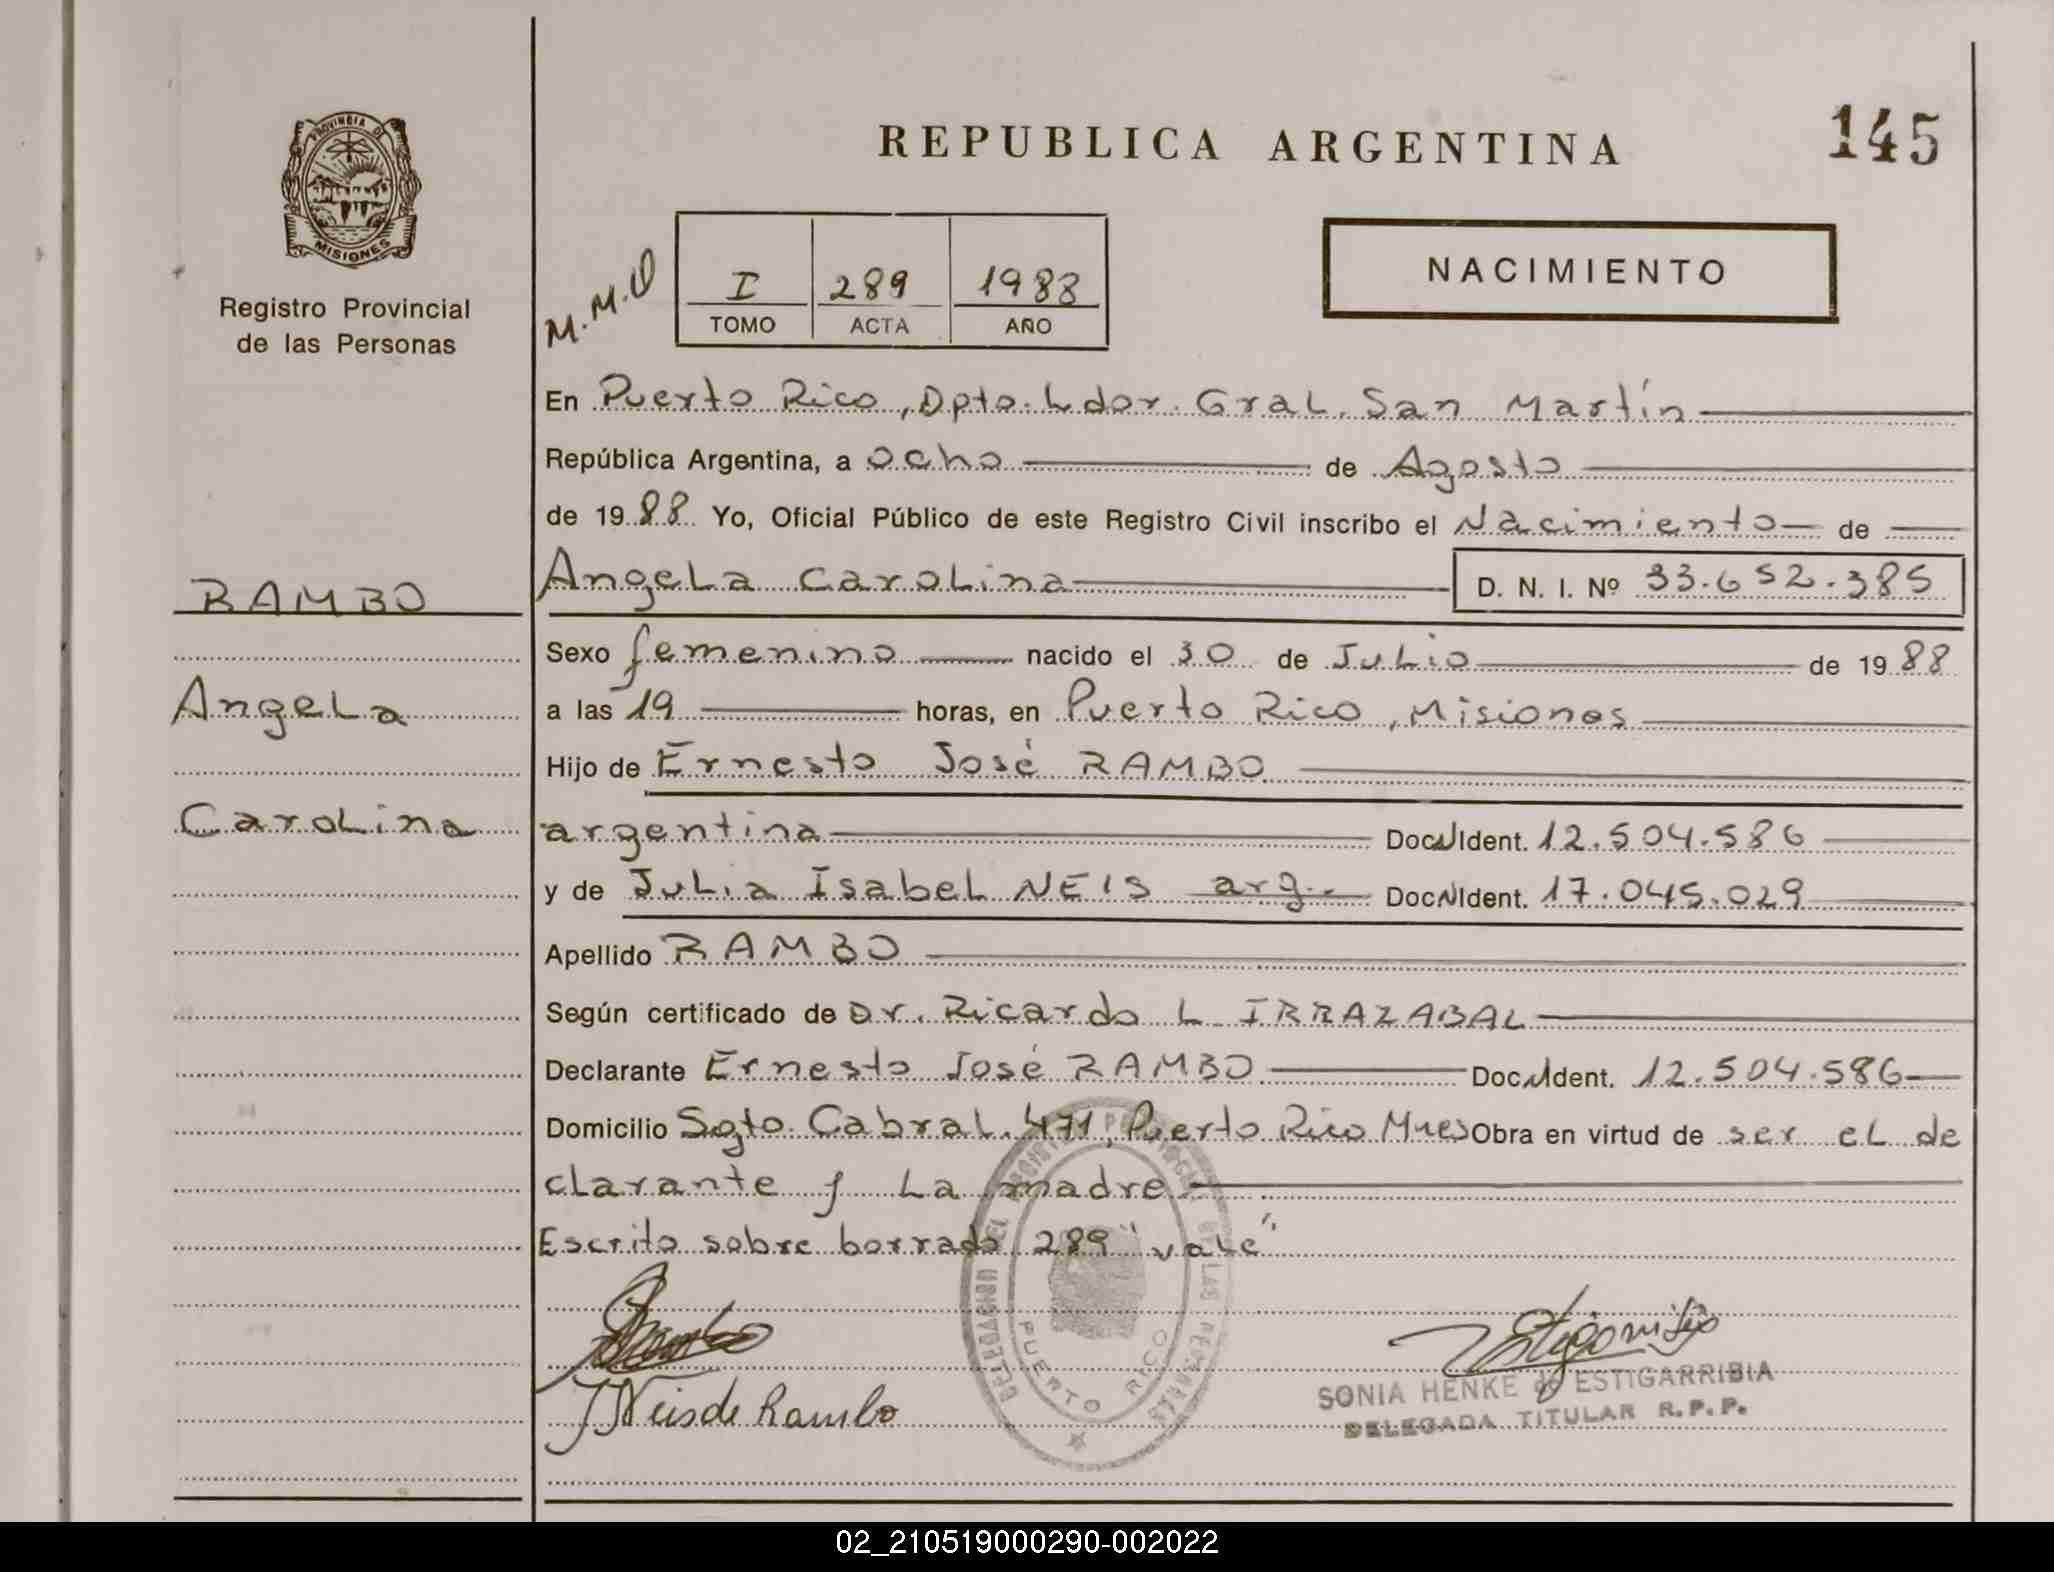 PROVINCIA DE
MISIONES
Registro Provincial
de las Personas
RAMBO
Angela
Carolina
REPUBLICA ARGENTINA
145
M.M.O
I 289 1988
TOMO ACTA AÑO
NACIMIENTO
En Puerto Rico, Dpto. Ldor. Gral. San Martín
República Argentina, a ocho de Agosto
de 1988 Yo, Oficial Público de este Registro Civil inscribo el Nacimiento de
Angela Carolina D. N. I. Nº 33.652.385
Sexo femenino nacido el 30 de Julio de 1988
a las 19 horas, en Puerto Rico, Misiones
Hijo de Ernesto José RAMBO
argentina Doc. Ident. 12.504.586
y de Julia Isabel NEIS arg. Doc. Ident. 17.045.029
Apellido RAMBO
Según certificado de Dr. Ricardo L IRRAZABAL
Declarante Ernesto José RAMBO Doc. Ident. 12.504.586
Domicilio Sgto. Cabral 471, Puerto Rico Mnes Obra en virtud de ser el de
clarante y La madre.
Escrito sobre borrado 289 "vale"
DELEGACION DEL REGISTRO PROVINCIAL DE LAS PERSONAS
PUERTO RICO
J Neis de Rambo
SONIA HENKE de ESTIGARRIBIA
DELEGADA TITULAR R.P.P.
02_210519000290-002022